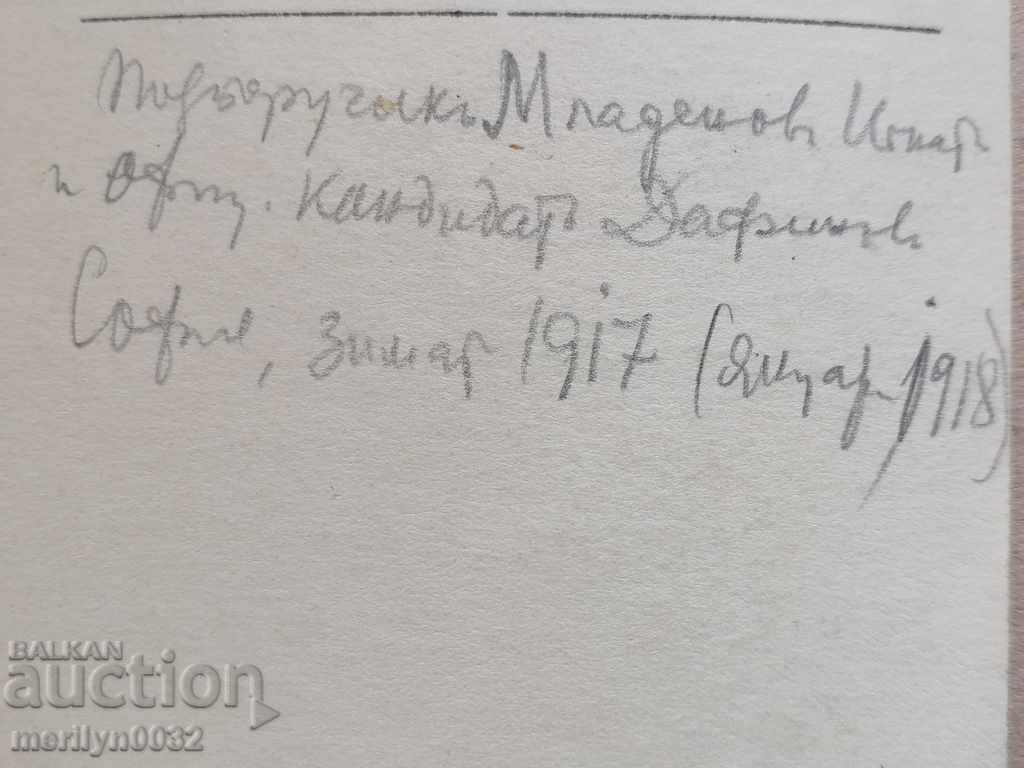 Подпоручикъ Младеновъ Игнатъ
и Офиц. Кандидатъ Дафиновъ
София, зимата 1917 (Януар. 1918)
BALKAN
auction
merilyn0032